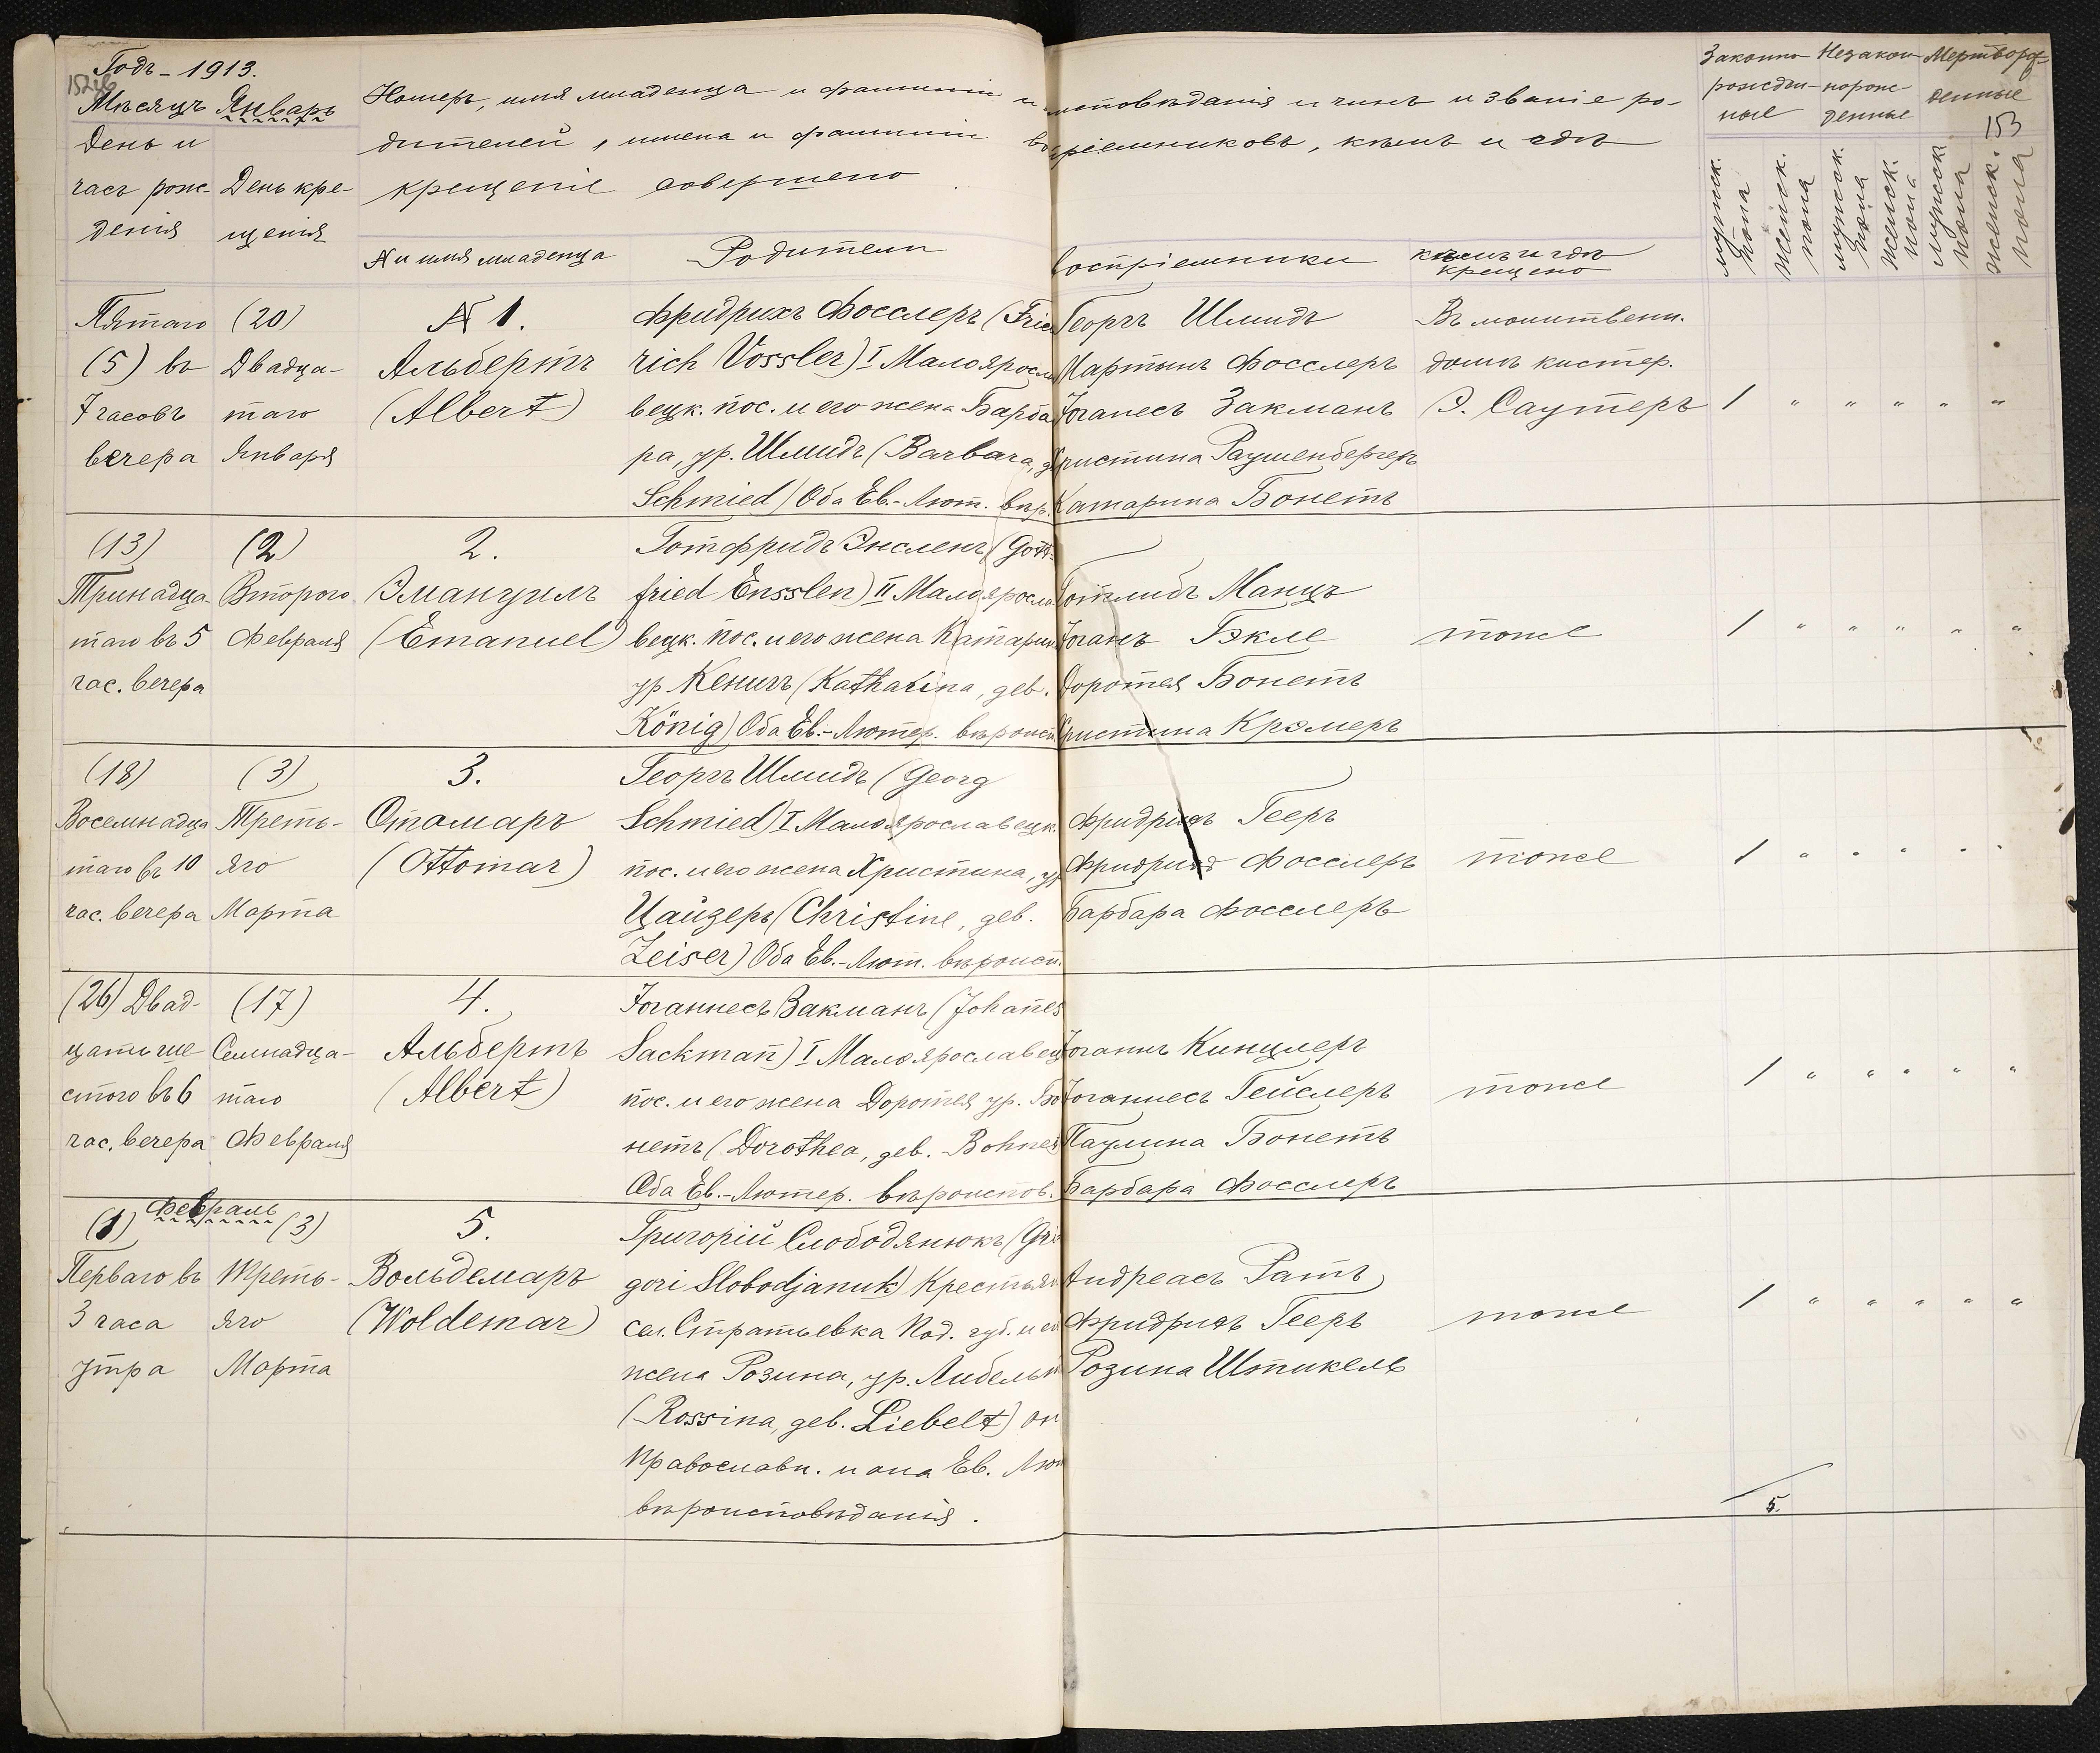 Годъ - 1913.
Мѣсяцъ Январь
День и
часъ рож-
денія
День кре-
щенія
Номеръ, имя младенца и фамилiи и исповѣданія и чинъ и званіе ро-
дителей, имена и фамилiи воспріемниковъ, кѣмъ и гдѣ
крещеніе совершено
№ и имя младенца
Родители
Воспріемники
кѣмъ и гдѣ
крещено
Законно-
рожден-
ные
Незакон-
норож-
денные
Мертворож-
денные
153
мужск. пола
женск. пола
мужск. пола
женск. пола
мужск. пола
женск. пола
Пятаго
(5) въ
7 часовъ
вечера
(20)
Двадца-
таго
Января
№ 1.
Альбертъ
(Albert)
Фридрихъ Фосслеръ (Fried
rich Vossler) I Малояросла
вецк. пос. и его жена Барба
ра, ур. Шмидъ (Barbara,
Schmied) Оба Ев.-Лют. вѣр.
Георгъ Шмидъ
Мартынъ Фосслеръ
Іоганесъ Закманъ
Христина Раушенбергеръ
Катарина Бонетъ
Въ молитвенн.
домѣ кистер.
Э. Саутеръ
1 " " " " "
(13)
Тринадца-
таго въ 5
час. вечера
(2)
Второго
Февраля
2.
Эмануилъ
(Emanuel)
Готфридъ Энсленъ (Gott-
fried Ensslen) II Малояросла
вецк. пос. и его жена Катарин
ур. Кенигъ (Katharina, geb.
König) Оба Ев.-Лютер. вѣроисп
Готлибъ Манцъ
Іоганъ Гэкле
Доротея Бонетъ
Христина Крэмеръ
тоже
1 " " " " "
(18)
Восемнадца
таго въ 10
час. вечера
(3)
Треть-
яго
Марта
3.
Отомаръ
(Ottomar)
Георгъ Шмидъ (Georg
Schmied) I Малоярославецк.
пос. и его жена Христина, ур
Цайзеръ (Christine, geb.
Zeiser) Оба Ев.-Лют. вѣроисп.
Фридрихъ Гееръ
Фридрихъ Фосслеръ
Барбара Фосслеръ
тоже
1 " " " " "
(26) Двад-
цать ше
стого въ 6
час. вечера
(17)
Семнадца-
таго
Февраля
4.
Альбертъ
(Albert)
Іоганнесъ Закманъ (Johañes
Sackmañ) I Малоярославец
пос. и его жена Доротея ур. Бо
нетъ (Dorothea, geb. Bohnet
Оба Ев.-Лютер. вѣроиспов.
Іоганнъ Кинцлеръ
Іоганнесъ Гейслеръ
Паулина Бонетъ
Барбара Фосслеръ
тоже
1 " " " " "
Февраль
(1)
Перваго въ
3 часа
утра
(3)
Треть-
яго
Марта
5.
Вольдемаръ
(Woldemar)
Григорій Слободянюкъ (Gri
gori Slobodjanuk) Крестьян
сел. Стратьевка Под. губ. и ег
жена Розина, ур. Либельт
(Rossina, geb. Liebelt) он
Православн. и она Ев. Лют
вѣроисповѣданія.
Андреасъ Ратъ
Фридрихъ Гееръ
Розина Штикель
тоже
1 " " " " "
5.